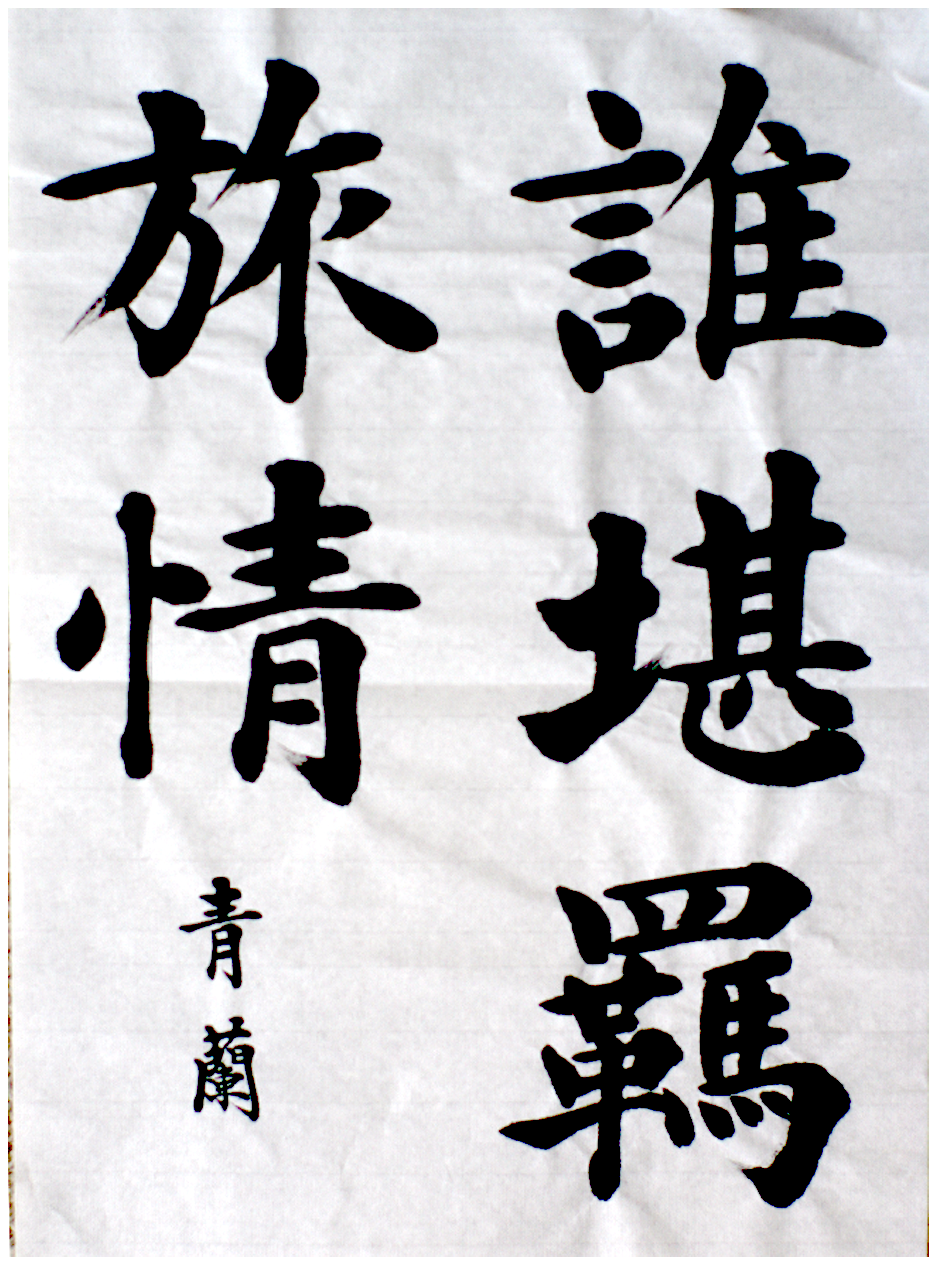 誰堪羈
旅情
青蘭